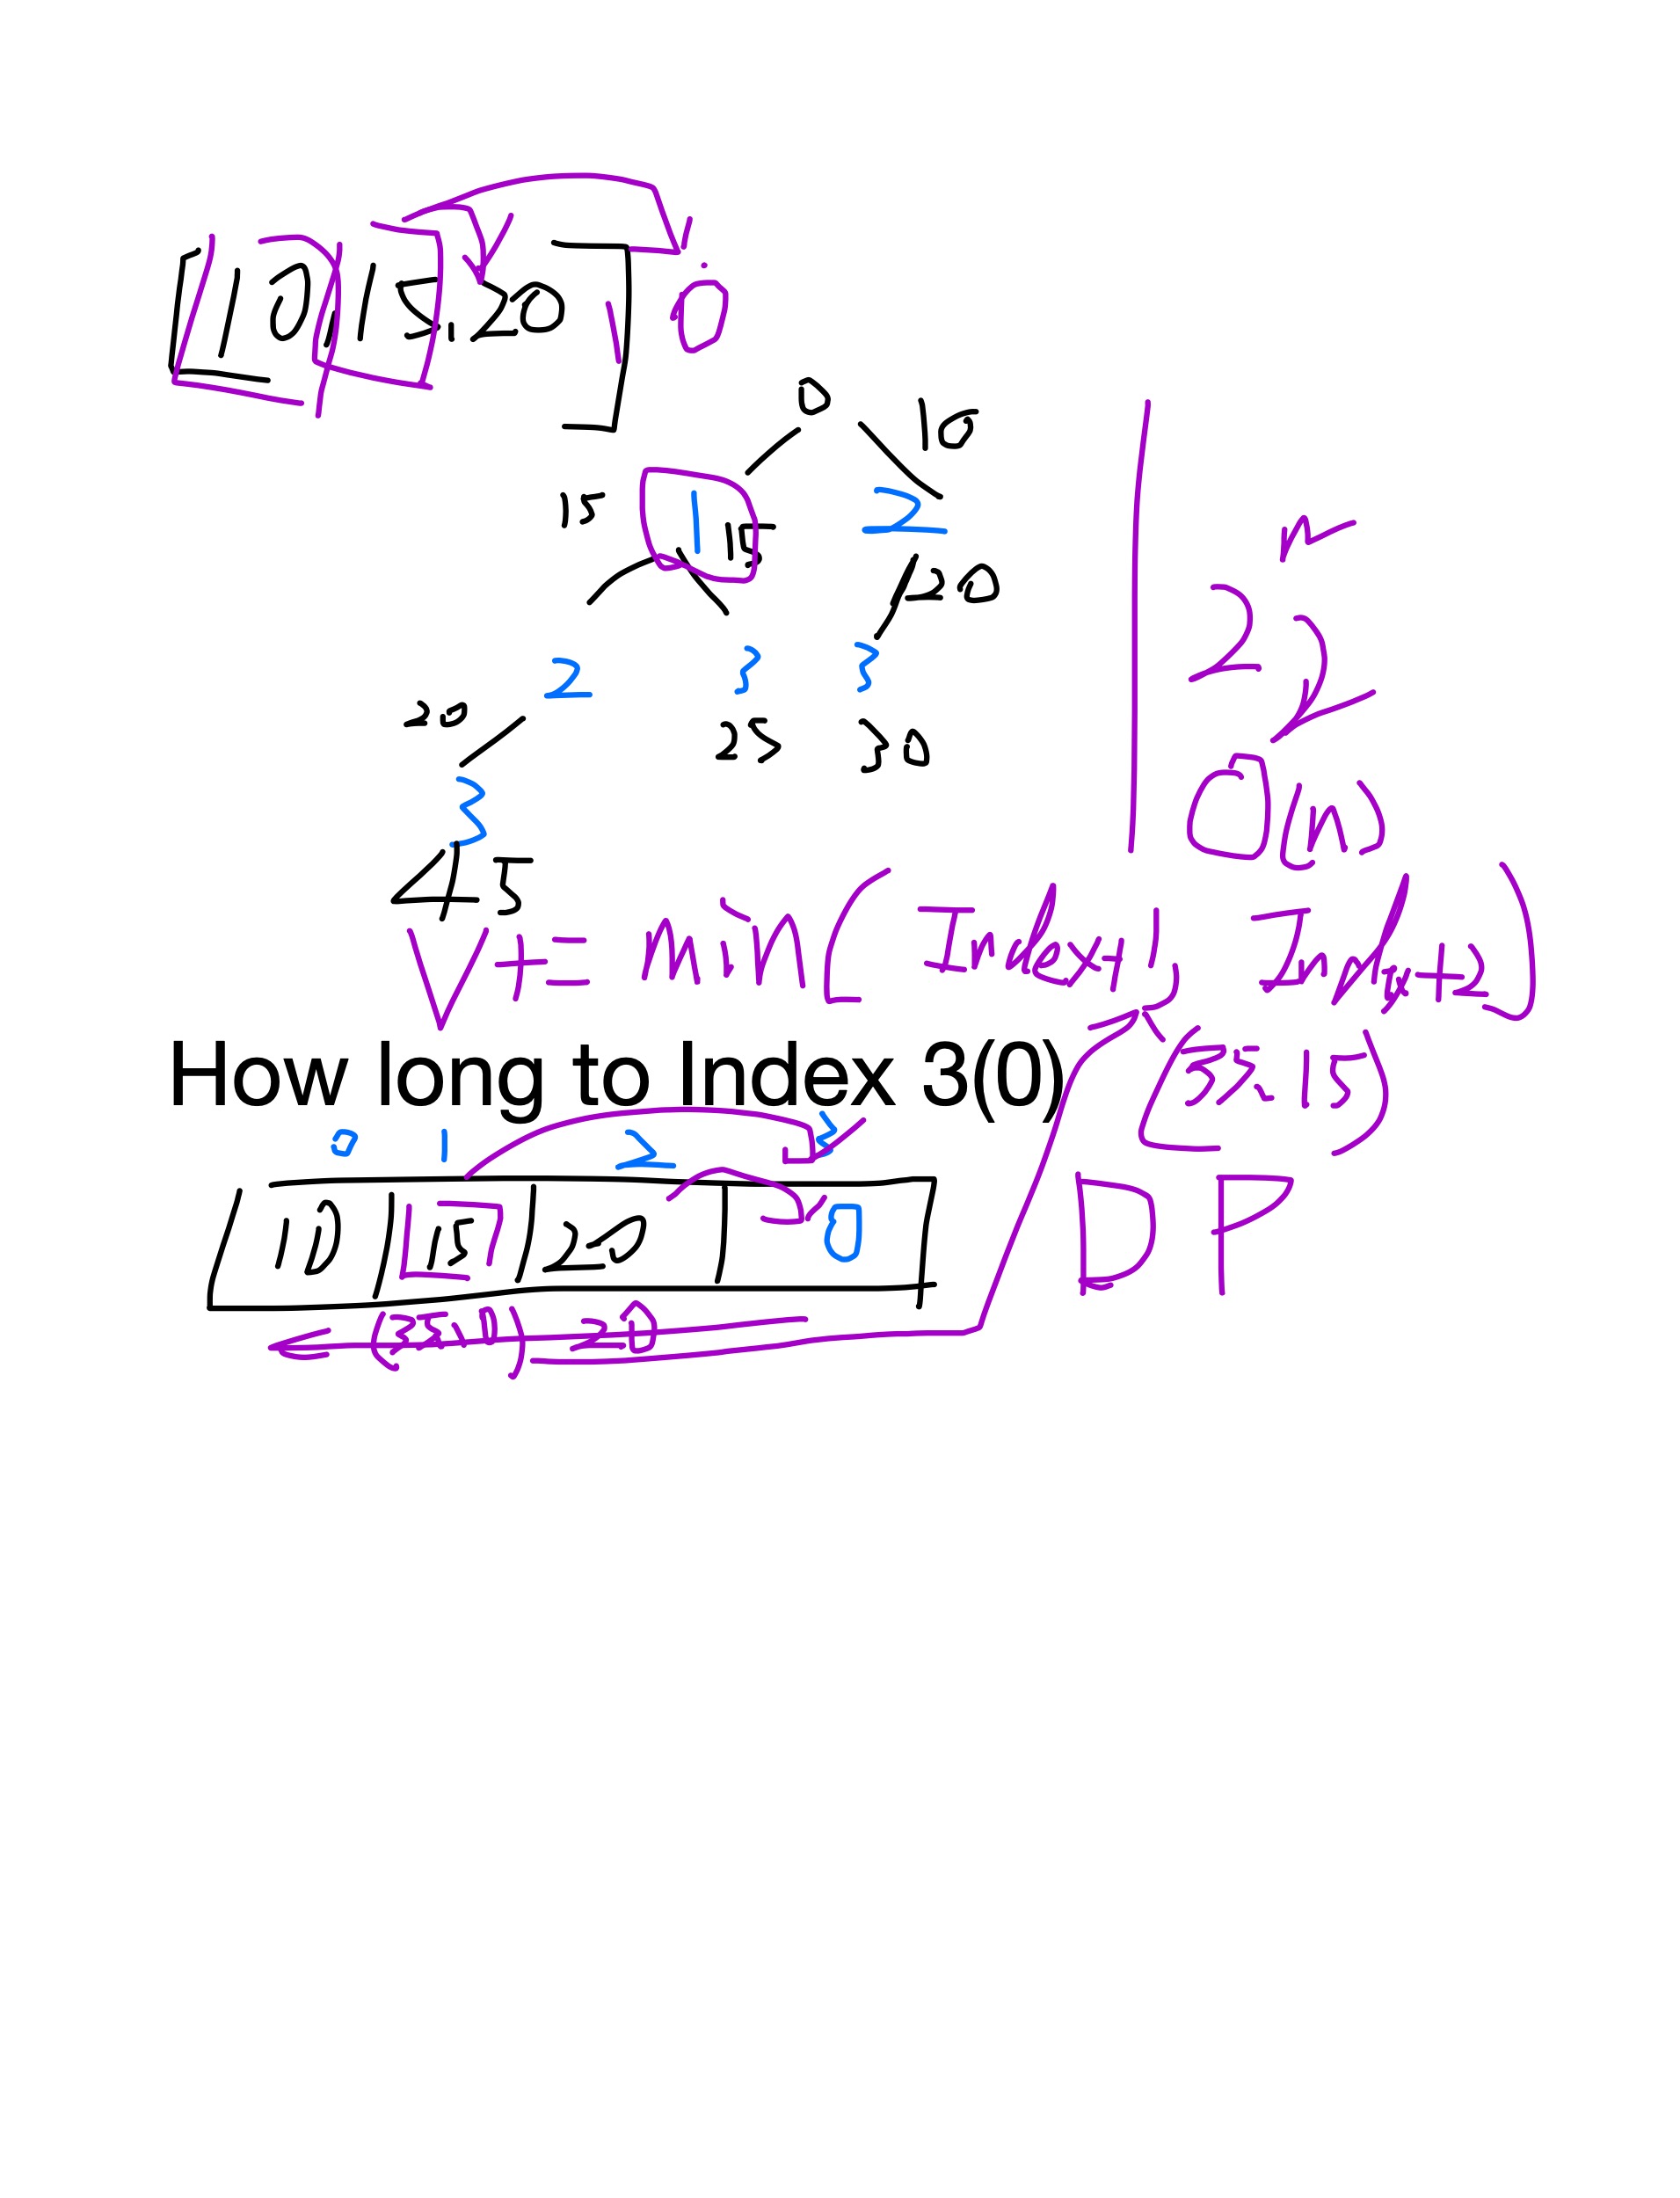 [10, 15, 20] 0
0 10
15 1 15 2
20
2 3 3
20 25 30
3
45
2^n
O(n)
V += min(Index+1, Index+2)
How long to Index 3(0)
0 1 2 3
(35, 15)
10 15 20 0
DP
20